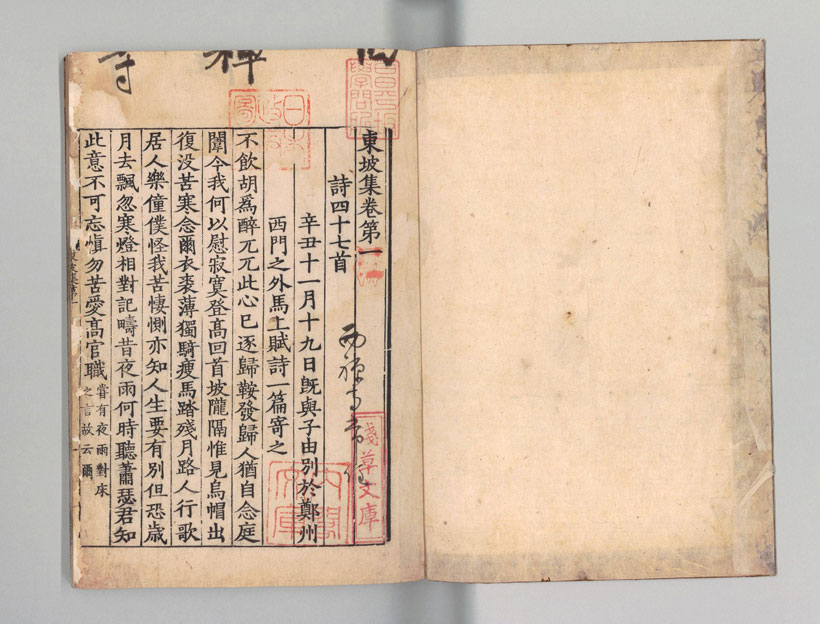 禪
寺
東坡集卷第一
西禅寺
淺草文庫
詩四十七首
辛丑十一月十九日旣與子由別於鄭州
西門之外馬上賦詩一篇寄之
不飲胡爲醉兀兀此心已逐歸鞍發歸人猶自念庭
闈今我何以慰寂寞登髙回首坡隴隔惟見烏帽出
復没苦寒念爾衣裘薄獨騎瘦馬踏殘月路人行歌
居人樂僮僕怪我苦悽惻亦知人生要有別但恐歲
月去飄忽寒燈相對記疇昔夜雨何時聽蕭瑟君知
此意不可忘愼勿苦愛髙官職
嘗有夜雨對床
之言故云爾